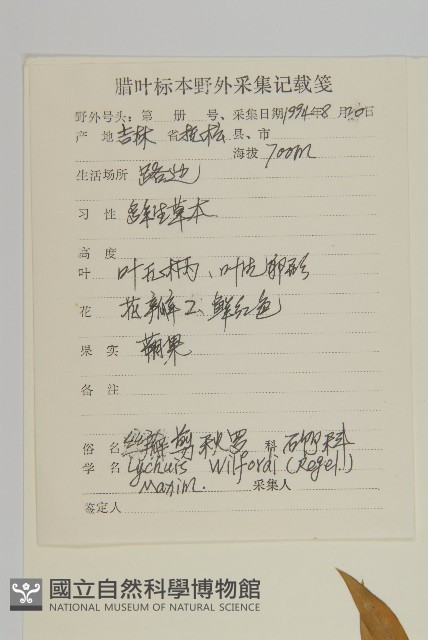 腊叶标本野外采集记载笺
野外号头: 第 册 号、采集日期1994年8月20日
产 地 吉林 省 抚松 县、市
海拔 700m
生活场所 路边
习 性 多年生草本
高 度
叶 叶无柄、叶片卵形
花 花瓣5、鲜红色
果 实 蒴果
备 注
俗 名 丝瓣剪秋罗 科 石竹科
学 名 Lychnis Wilfordi (Regel.)
Maxim. 采集人
鉴定人
國立自然科學博物館
NATIONAL MUSEUM OF NATURAL SCIENCE